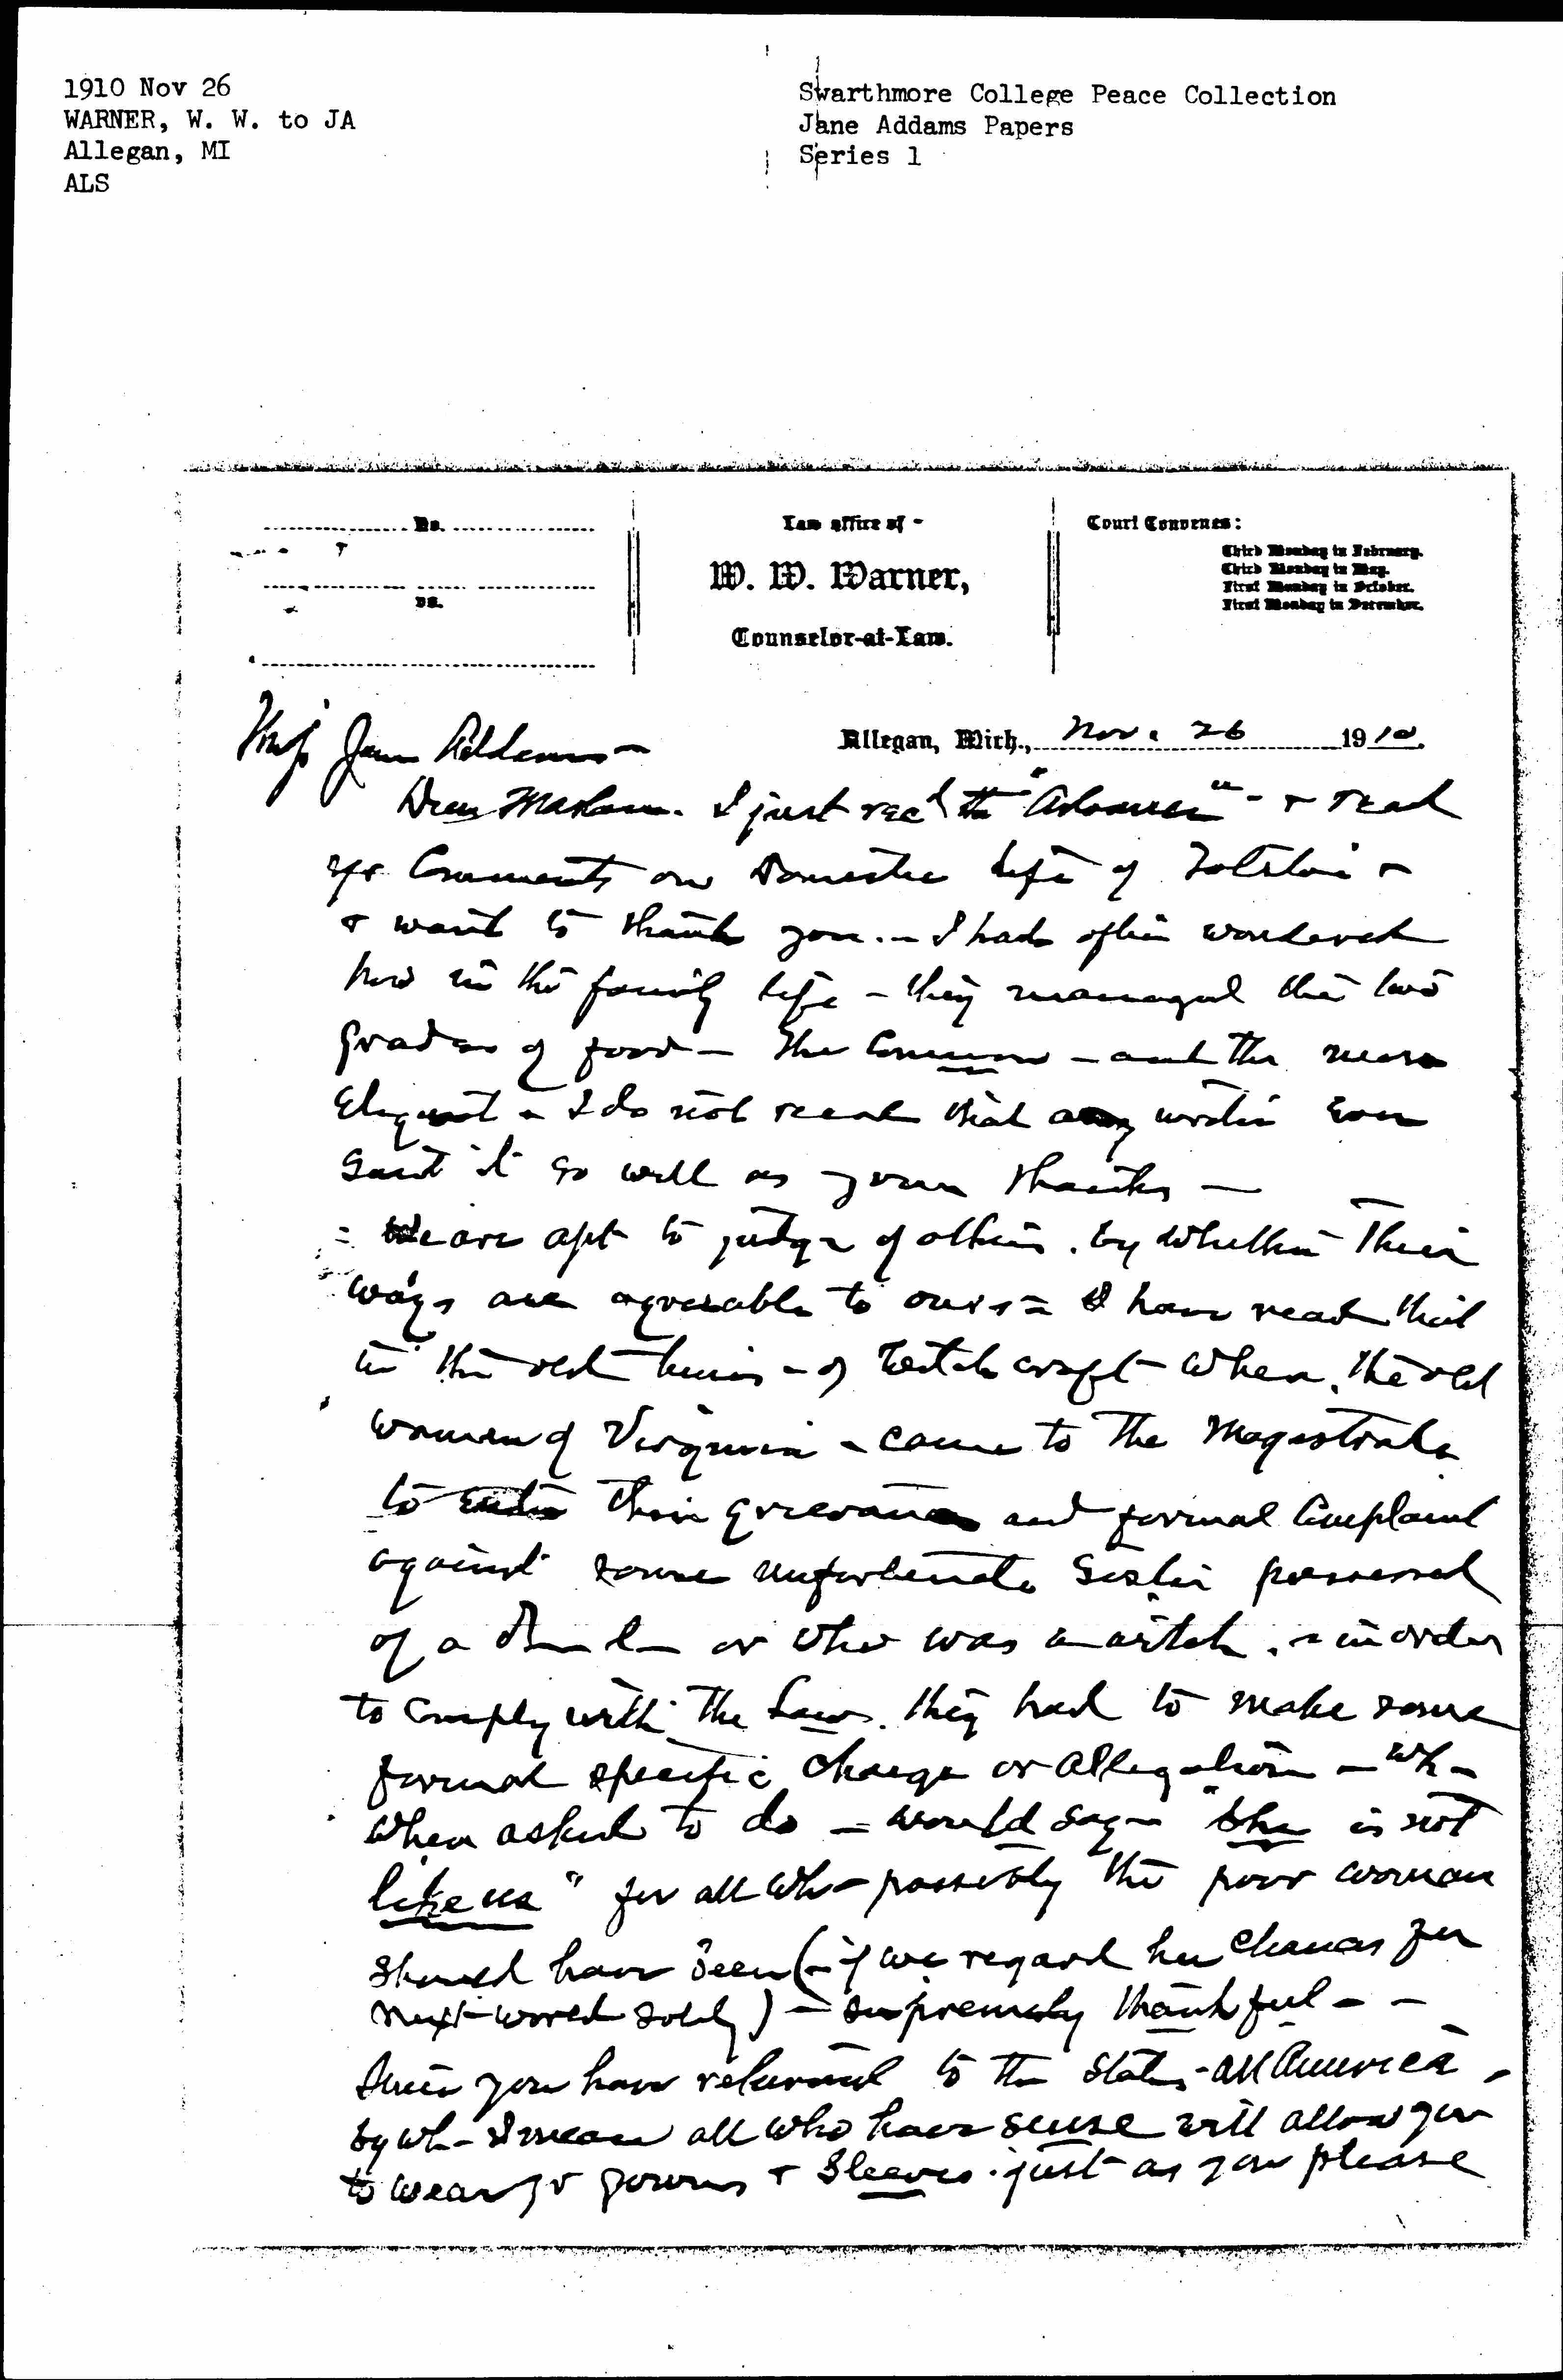 1910 Nov 26
WARNER, W. W. to JA
Allegan, MI
ALS
Swarthmore College Peace Collection
Jane Addams Papers
Series 1
No.
vs.
Law office of -
W. W. Warner,
Counselor-at-Law.
Court Convenes:
Third Monday in February.
Third Monday in May.
First Monday in October.
First Monday in December.
Allegan, Mich., Nov. 26 1910.
Miss Jane Addams -
Dear Madam. I just rec'd the "Advance" - & read
yr Comments on Domestic life of Tolstoi -
& want to thank you. - I had often wondered
how in the family life - they managed the two
grades of food - The Common - and the more
Elegant - I do not recall that any writer ever
said it so well as your thanks -
= We are apt to judge of others. by whether Their
ways are agreeable to ours = I have read that
in the old times - of Witch craft - when, the old
women of Virginia - came to The Magistrate
to enter their grievance and formal Complaint
against some unfortunate Sister possessed
of a Devil - or who was a witch. - in order
to Comply with The Law. they had to make some
formal specific charge or allegation - wh -
when asked to do - would say - "She is not
like us" for all wh - possibly the poor woman
should have been (- if we regard her Chances for
next world solely) - supremely thankful - -
Since you have returned to the States - all America -
by wh - I mean all who have sense will allow you
to wear yr gowns & Sleeves. just as you please